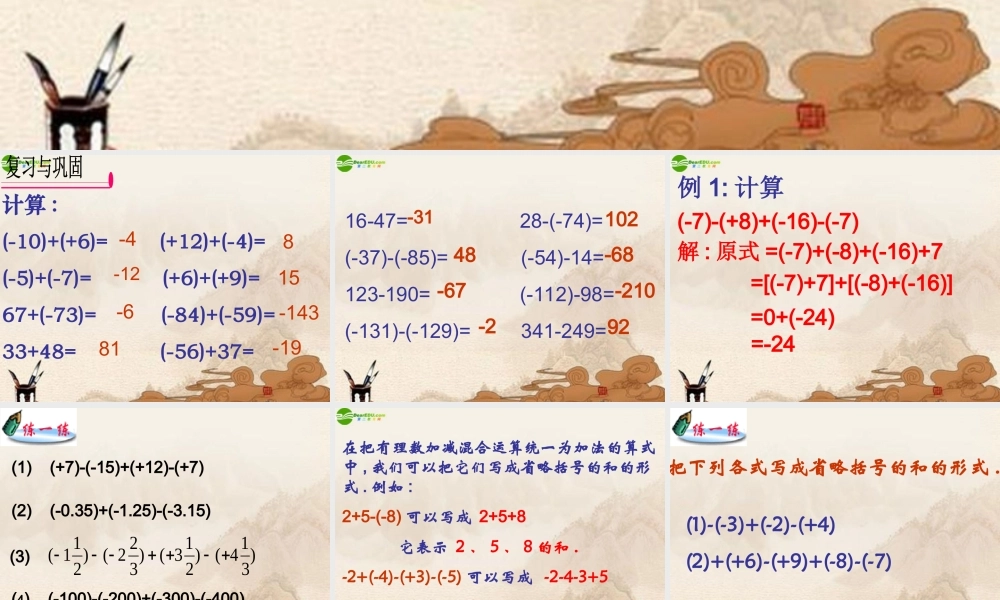 复习与巩固
计算 :
(-10)+(+6)= -4 (+12)+(-4)= 8
(-5)+(-7)= -12 (+6)+(+9)= 15
67+(-73)= -6 (-84)+(-59)= -143
33+48= 81 (-56)+37= -19
16-47=-31 28-(-74)=102
(-37)-(-85)= 48 (-54)-14=-68
123-190= -67 (-112)-98=-210
(-131)-(-129)= -2 341-249=92
例 1: 计算
(-7)-(+8)+(-16)-(-7)
解 : 原式 =(-7)+(-8)+(-16)+7
=[(-7)+7]+[(-8)+(-16)]
=0+(-24)
=-24
练一练
(1) (+7)-(-15)+(+12)-(+7)
(2) (-0.35)+(-1.25)-(-3.15)
(3) (-1 1/2)-(-2 2/3)+(+3 1/2)-(+4 1/3)
(4) (-100)-(-200)+(-300)-(-400)
在把有理数加减混合运算统一为加法的算式
中 , 我们可以把它们写成省略括号的和的形
式 . 例如 :
2+5-(-8) 可以写成 2+5+8
它表示 2 、 5 、 8 的和 .
-2+(-4)-(+3)-(-5) 可以写成 -2-4-3+5
练一练
把下列各式写成省略括号的和的形式 .
(1)-(-3)+(-2)-(+4)
(2)+(+6)-(+9)+(-8)-(-7)